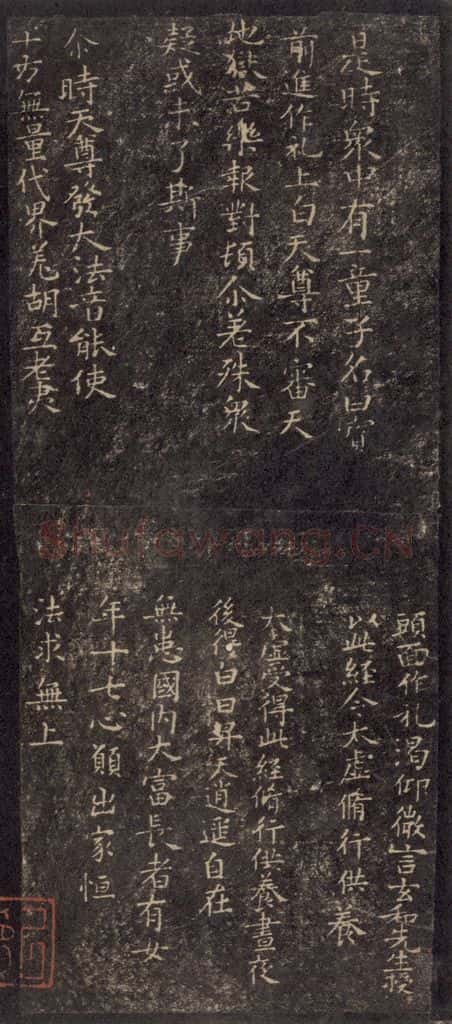 是時衆中有一童子名曰寳
前進作礼上白天尊不審天
地獄苦樂報對頓尒差殊衆
疑或未了斯事
尒時天尊發大法音能使
十方無量代界羌胡互老夷
shufawang.CN
頭面作礼渴仰微言玄和先生授
以此經令太虛脩行供養
太虛受得此經脩行供養晝夜
後得白日昇天逍遥自在
無恚國內大富長者有女
年十七心願出家恒
法求無上